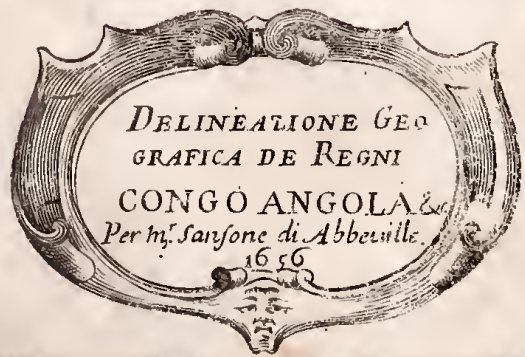 DELINEATIONE GEO
GRAFICA DE REGNI
CONGO ANGOLA &c
Per m.r Sansone di Abbeuille.
1656